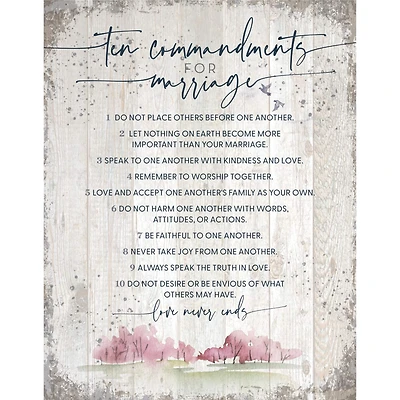 ten commandments
FOR
marriage
1 DO NOT PLACE OTHERS BEFORE ONE ANOTHER.
2 LET NOTHING ON EARTH BECOME MORE
IMPORTANT THAN YOUR MARRIAGE.
3 SPEAK TO ONE ANOTHER WITH KINDNESS AND LOVE.
4 REMEMBER TO WORSHIP TOGETHER.
5 LOVE AND ACCEPT ONE ANOTHER'S FAMILY AS YOUR OWN.
6 DO NOT HARM ONE ANOTHER WITH WORDS,
ATTITUDES, OR ACTIONS.
7 BE FAITHFUL TO ONE ANOTHER.
8 NEVER TAKE JOY FROM ONE ANOTHER.
9 ALWAYS SPEAK THE TRUTH IN LOVE.
10 DO NOT DESIRE OR BE ENVIOUS OF WHAT
OTHERS MAY HAVE.
love never ends